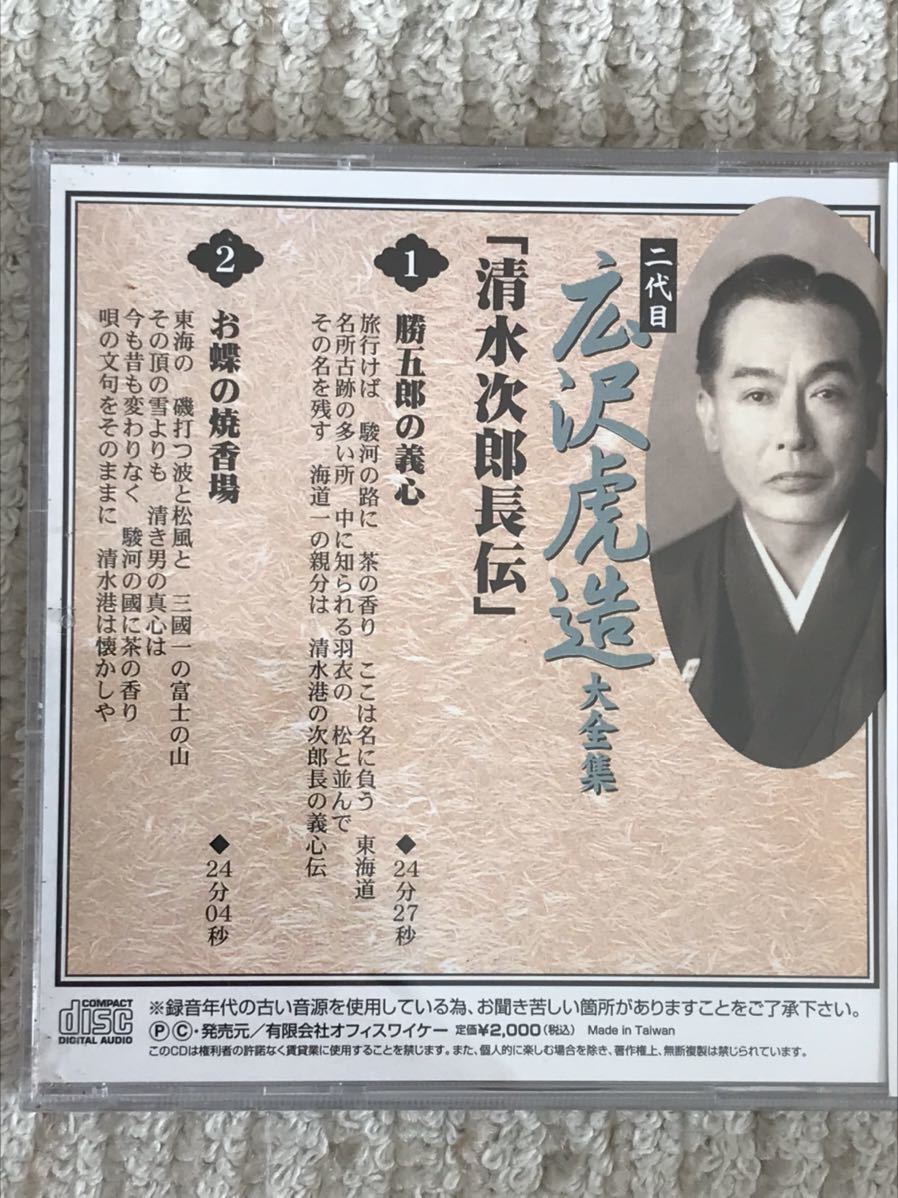 二代目
広沢虎造
大全集
「清水次郎長伝」
1
勝五郎の義心
◆24分27秒
旅行けば 駿河の路に 茶の香り ここは名に負う 東海道
名所古跡の多い所 中に知られる羽衣の 松と並んで
その名を残す 海道一の親分は 清水港の次郎長の義心伝
2
お蝶の焼香場
◆24分04秒
東海の 磯打つ波と松風と 三國一の富士の山
その頂の雪よりも 清き男の真心は
今も昔も変わりなく 駿河の國に茶の香り
唄の文句をそのままに 清水港は懐かしや
COMPACT
disc
DIGITAL AUDIO
※録音年代の古い音源を使用している為、お聞き苦しい箇所がありますことをご了承下さい。
ⓅⒸ・発売元/有限会社オフィスワイケー 定価¥2,000(税込) Made in Taiwan
このCDは権利者の許諾なく賃貸業に使用することを禁じます。また、個人的に楽しむ場合を除き、著作権上、無断複製は禁じられています。